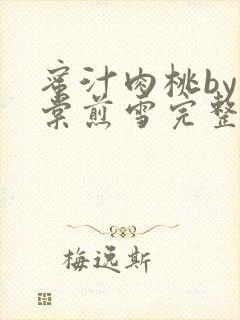 蜜汁肉桃by
棠煎雪完整
梅远斯